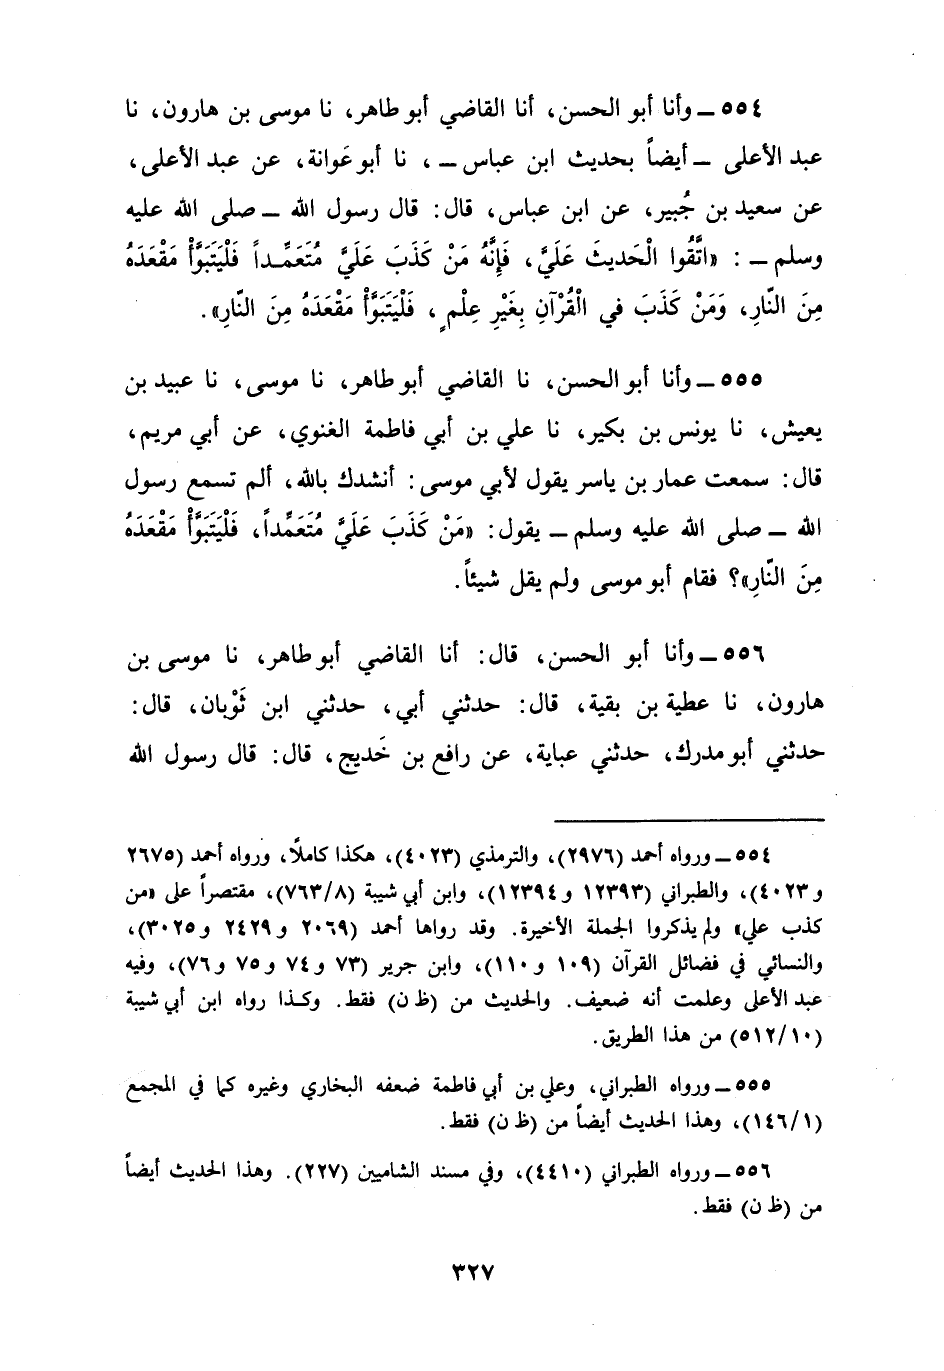 ٥٥٤ ــ وأنا أبو الحسن، أنا القاضي أبو طاهر، نا موسى بن هارون، نا
عبد الأعلى ــ أيضاً بحديث ابن عباس ــ، نا أبو عَوانة، عن عبد الأعلى،
عن سعيد بن جُبير، عن ابن عباس، قال: قال رسول الله ــ صلى الله عليه
وسلم ــ : «اتَّقُوا الْحَديثَ عَلَيَّ، فَإِنَّهُ مَنْ كَذَبَ عَلَيَّ مُتَعَمِّـداً فَلْيَتَبَوَّأْ مَقْعَدَهُ
مِنَ النَّارِ، وَمَنْ كَذَبَ في الْقُرْآنِ بِغَيْرِ عِلْمٍ، فَلْيَتَبَوَّأْ مَقْعَدَهُ مِنَ النَّارِ».
٥٥٥ ــ وأنا أبو الحسن، نا القاضي أبو طاهر، نا موسى، نا عبيد بن
يعيش، نا يونس بن بكير، نا علي بن أبي فاطمة الغنوي، عن أبي مريم،
قال: سمعت عمار بن ياسر يقول لأبي موسى: أنشدك بالله، ألم تسمع رسول
الله ــ صلى الله عليه وسلم ــ يقول: «مَنْ كَذَبَ عَلَيَّ مُتَعَمِّداً، فَلْيَتَبَوَّأْ مَقْعَدَهُ
مِنَ النَّارِ»؟ فقام أبو موسى ولم يقل شيئاً.
٥٥٦ ــ وأنا أبو الحسن، قال: أنا القاضي أبو طاهر، نا موسى بن
هارون، نا عطية بن بقية، قال: حدثني أبي، حدثني ابن ثَوْبان، قال:
حدثني أبو مدرك، حدثني عباية، عن رافع بن خَديج، قال: قال رسول الله
٥٥٤ ــ ورواه أحمد (٢٩٧٦)، والترمذي (٤٠٢٣)، هكذا كاملًا، ورواه أحمد (٢٦٧٥
و ٤٠٢٣)، والطبراني (١٢٣٩٣ و ١٢٣٩٤)، وابن أبي شيبة (٧٦٣/٨)، مقتصراً على «من
كذب علي» ولم يذكروا الجملة الأخيرة. وقد رواها أحمد (٢٠٦٩ و ٢٤٢٩ و ٣٠٢٥)،
والنسائي في فضائل القرآن (١٠٩ و ١١٠)، وابن جرير (٧٣ و ٧٤ و ٧٥ و ٧٦)، وفيه
عبد الأعلى وعلمت أنه ضعيف. والحديث من (ظ ن) فقط. وكـذا رواه ابن أبي شيبة
(٥١٢/١٠) من هذا الطريق.
٥٥٥ ــ ورواه الطبراني، وعلي بن أبي فاطمة ضعفه البخاري وغيره كما في المجمع
(١٤٦/١)، وهذا الحديث أيضاً من (ظ ن) فقط.
٥٥٦ ــ ورواه الطبراني (٤٤١٠)، وفي مسند الشاميين (٢٢٧). وهذا الحديث أيضاً
من (ظ ن) فقط.
٣٢٧